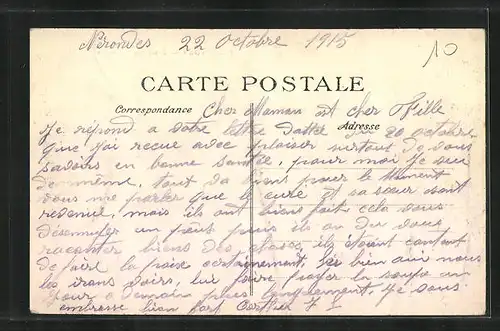 Nérondes 22 octobre 1915
10
CARTE POSTALE
Correspondance
Adresse
Cher Maman et cher Fille
Je répond a votre lettre datée du 20 octobre
que j'ai recue avec plaisir surtout de vous
savoirs en bonne santée, pour moi je sui
de même, tout va bien pour le moment
vous me parler que le curé et sa sœur sont
revenue, mais ils ont biens fait cela vous
désennuier un peut puis ils on du vous
raconter biens des choses, ils doivent contant
de faire la
nous
les irons voirs, lui faire la soupe au
jour a demain plus longuement. Je vous
embrasse bien fort